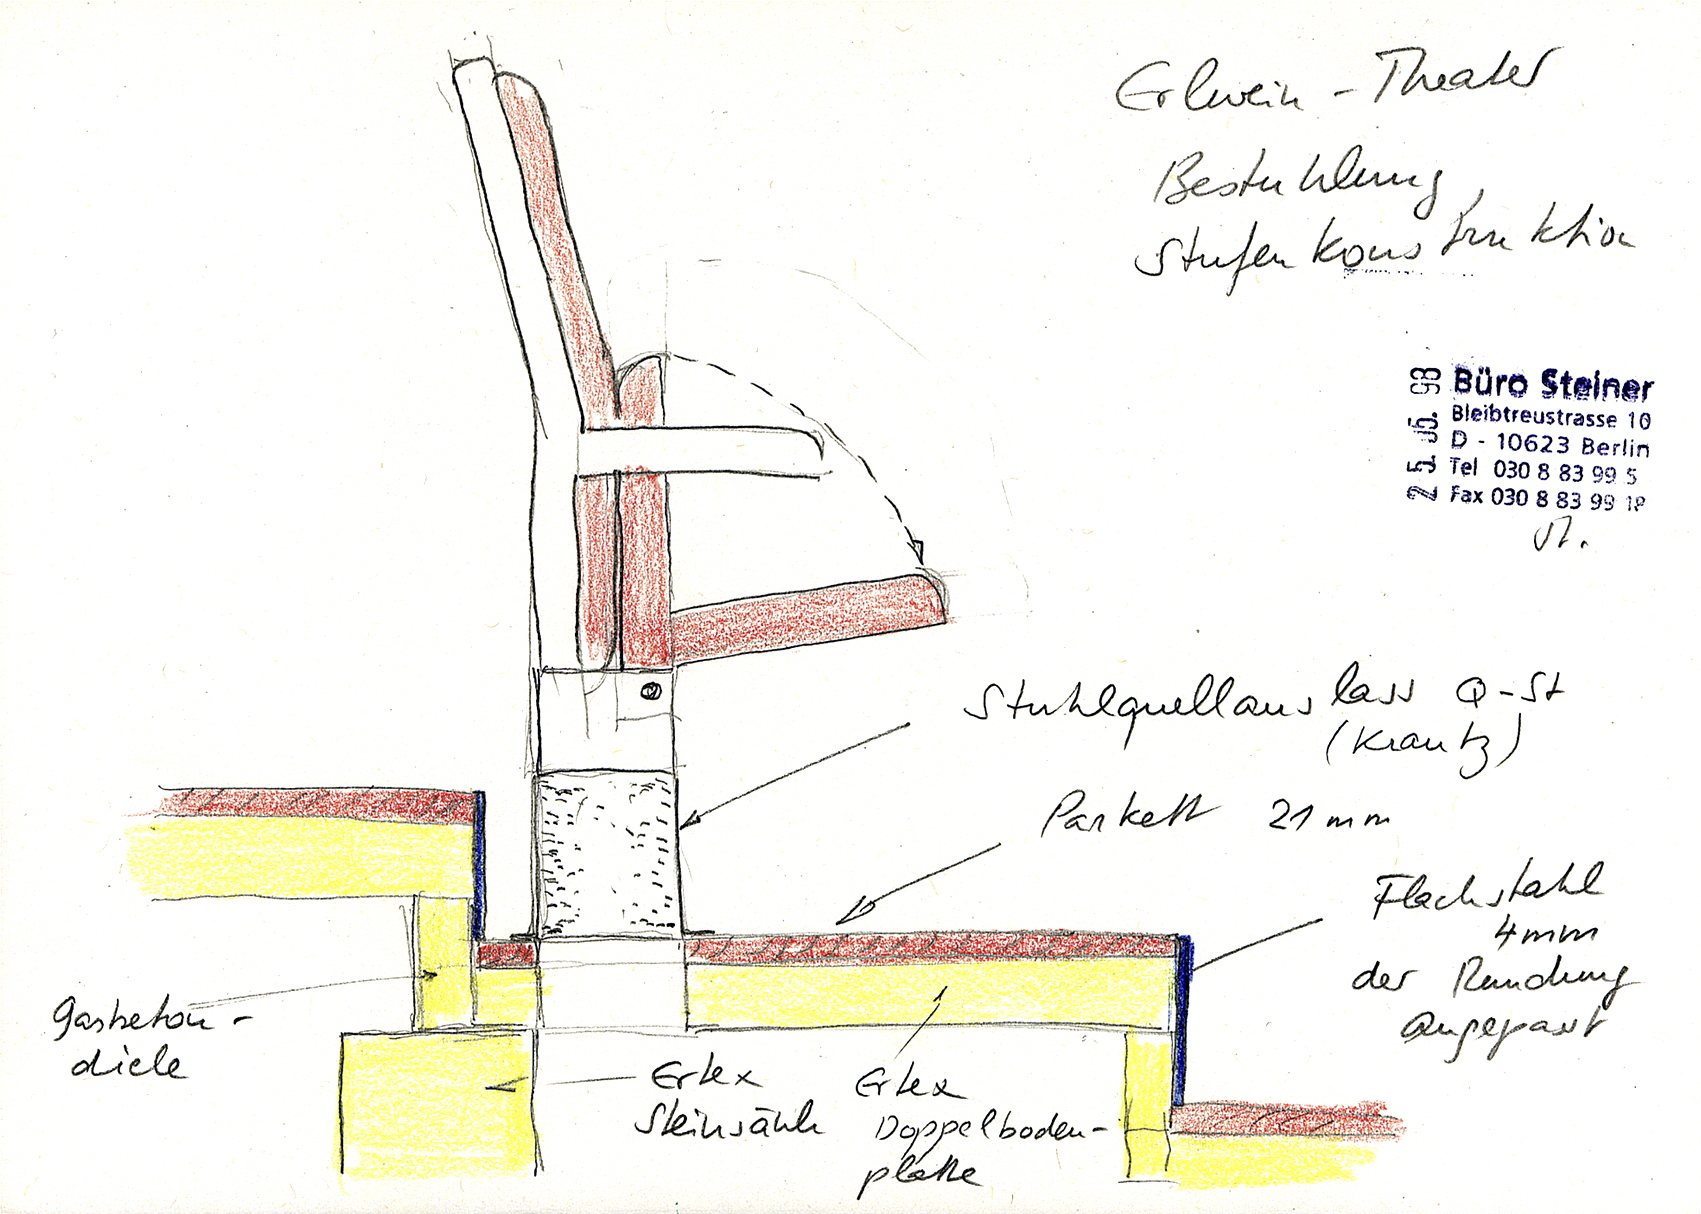 Erlwein - Theater
Bestuhlung
Stufenkonstruktion
Büro Steiner
Bleibtreustrasse 10
D - 10623 Berlin
Tel 030 8 83 99 5
Fax 030 8 83 99 18
Stuhlquellauslass Q-St
(Krantz)
Parkett 21 mm
Flachstahl
4mm
der Rundung
angepasst
Gasbeton-
diele
Ertex
Steinsäule
Ertex
Doppelboden-
platte